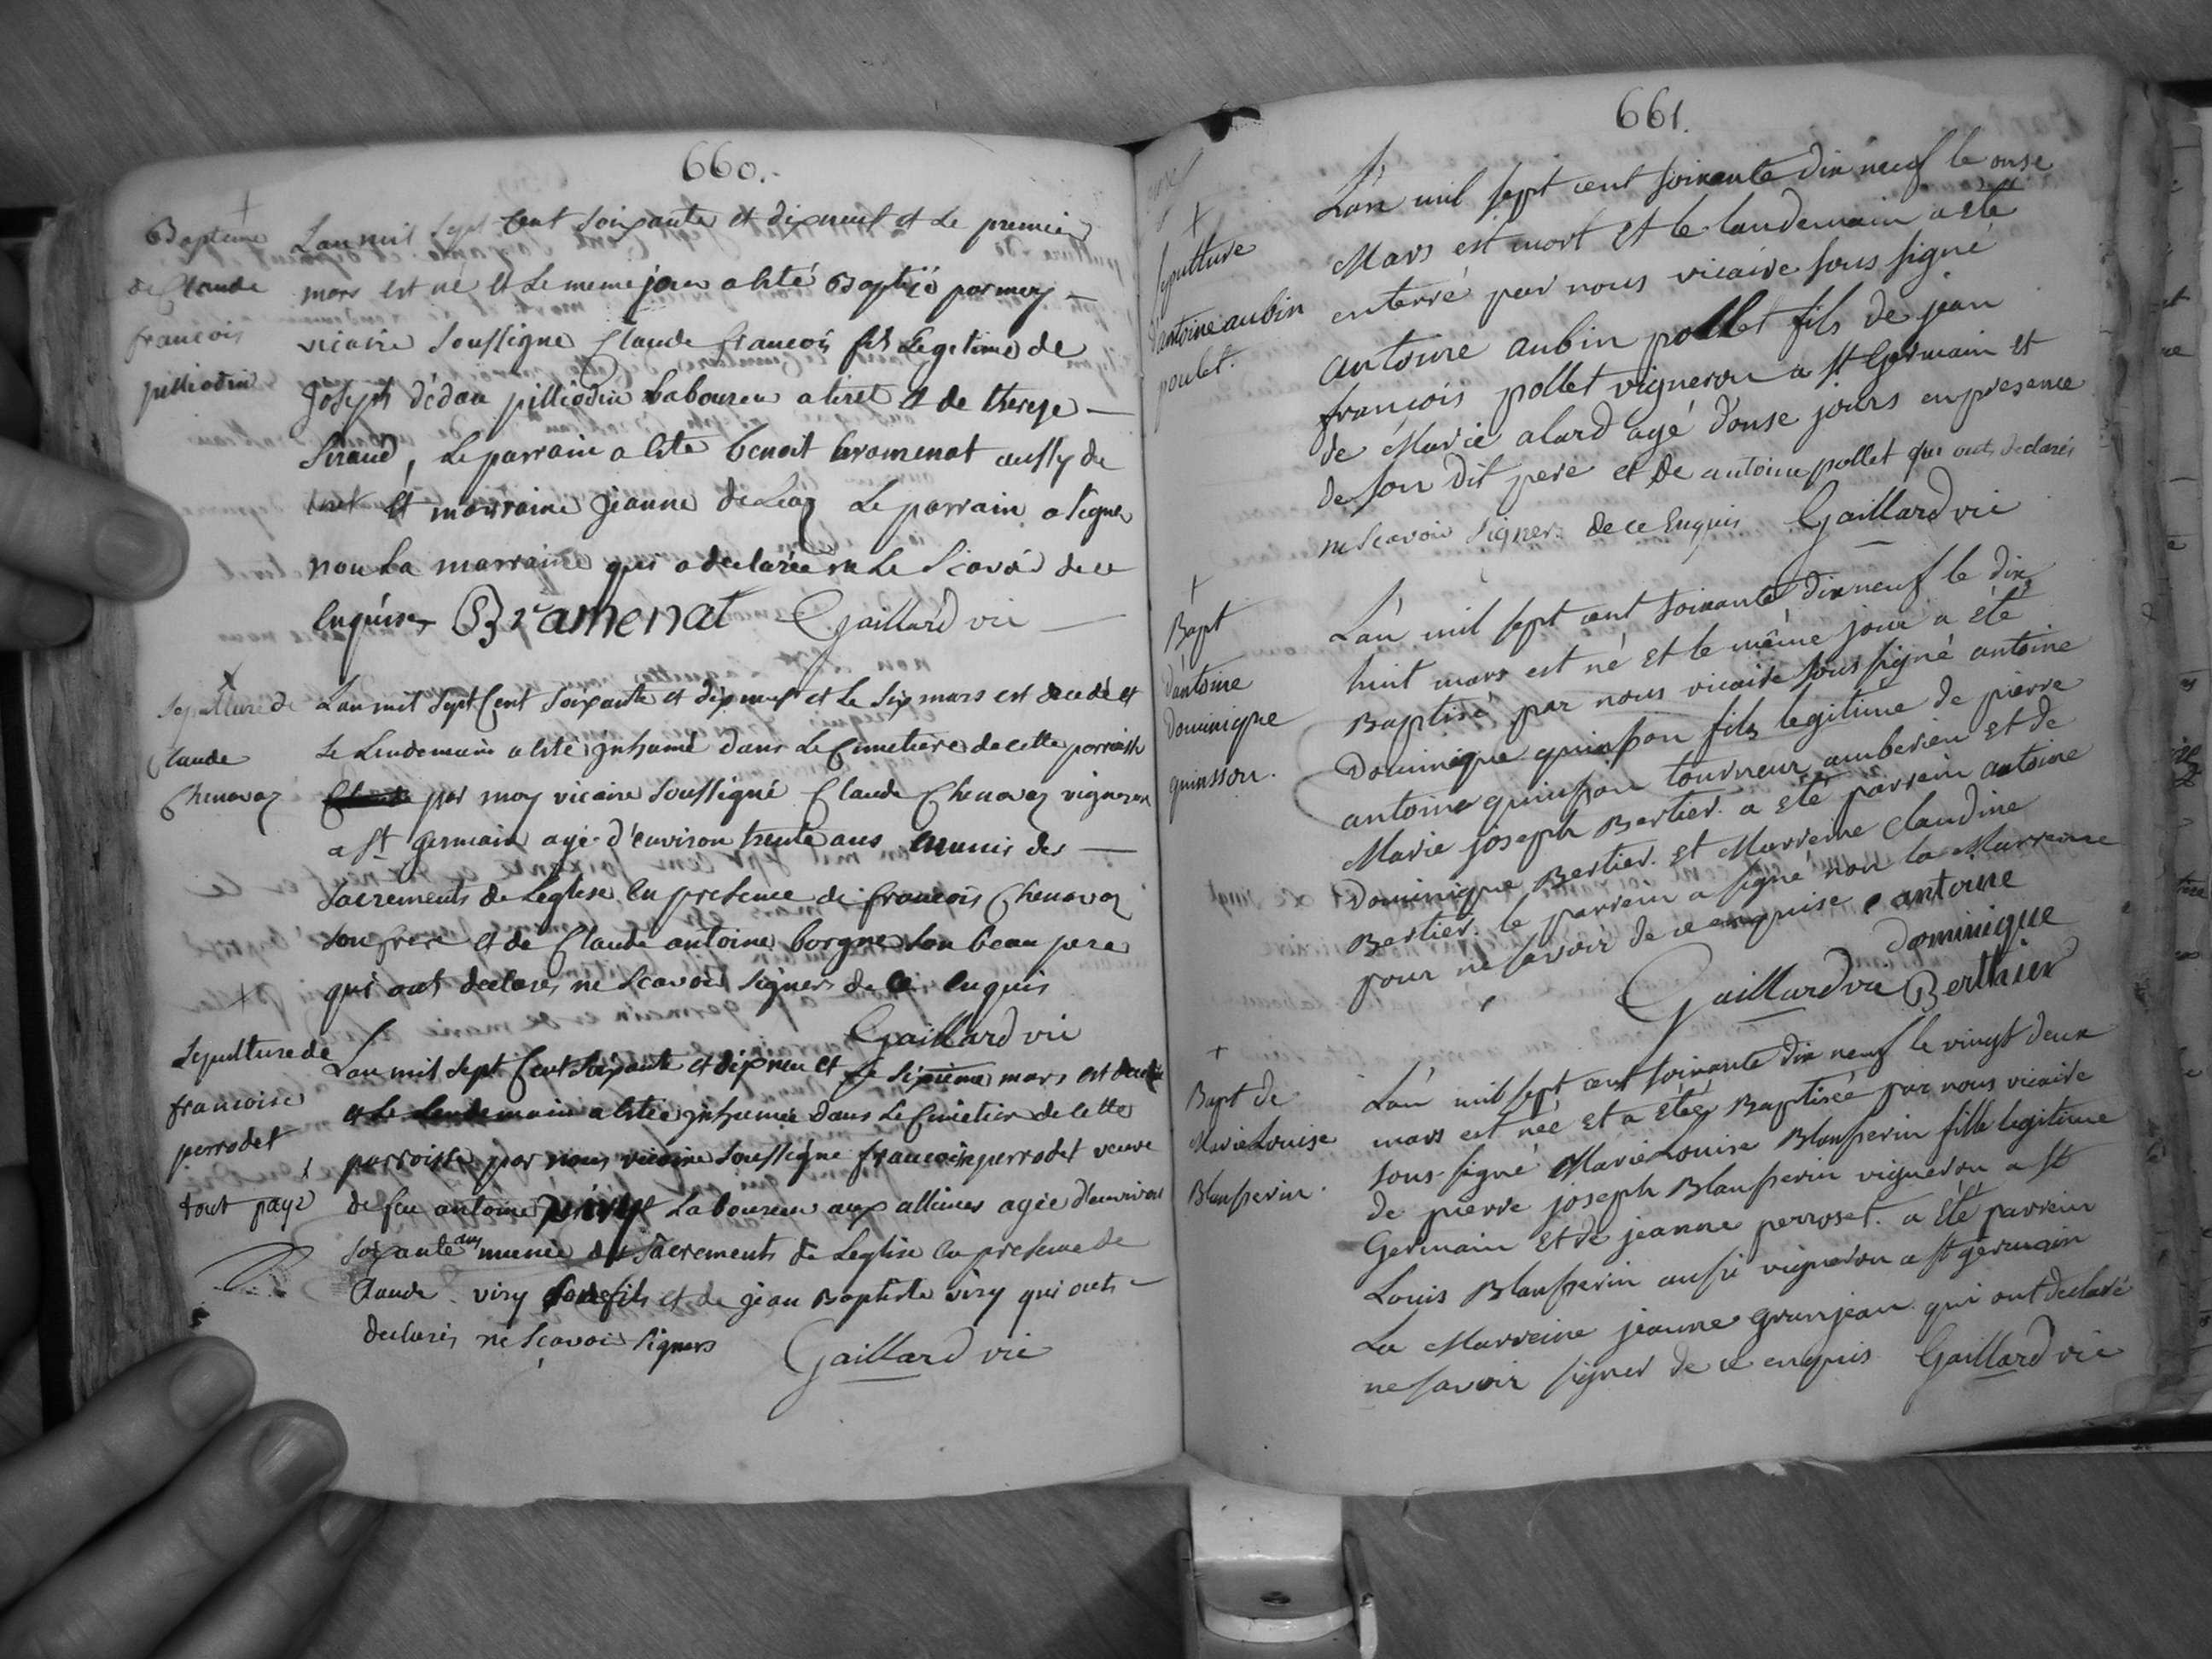 660.
Bapteme
de Claude
francois
pilliodin
Lan mil sept Cent soixante et dixneuf et Le premier
mars est né et Le meme jour a été Baptisé par moy
vicaire soussigne Claude francois fils Legitime de
Joseph dédau pilliodin Laboureur a tiret et de therese
Siraud, Le parrain a été benoit bramenat aussy de
tiret et marraine Jeanne de Leaz Le parrain a signé
non La marraine qui a declarée ne Le Scavoir de ce
Enquise Bramenat Gaillard vic
Sepulture de
Claude
Chenavaz
Lan mil Sept Cent Soixante et dixneuf et Le Six mars est decedé et
Le Lendemain a été Inhumé dans Le Cimetiere de cette parroisse
par moy vicaire soussigné Claude Chenavaz vigneron
a st germain agé d'environ trente ans munis des
Sacrements de Leglise En presence de francois Chenavaz
son frere et de Claude antoine borgne son beau pere
qui ont declarés ne Scavoir signer de Ce Enquis
Gaillard vic
Sepulture de
francoise
perrodet
tout payé
Lan mil Sept Cent Soixante et dixneuf et Le Sixieme mars est decedée
et Le Lendemain a été Inhumée dans Le Cimetier de cette
parroisse par nous vicaire soussigne francoise perrodet veuve
de feu antoine viry Laboureur aux allimes agée d'environ
Soixante ans munie des Sacrements de Leglise En presence de
Claude viry son fils et de Jean Baptiste viry qui onts
declarés ne Scavoir signers Gaillard vic
661.
Sepulture
d'antoine aubin
poulet.
L'an mil sept cent soixante dix neuf le onse
Mars est mort et le landemain a eté
enterré par nous vicaire sous signé
antoine aubin pollet fils de jean
françois pollet vigneron a st Germain et
de Marie alard agé d'onse jours en presence
de son dit pere et de antoine pollet qui onts declarés
ne Scavoir Signer de ce Enquis Gaillard vic
Bapt
d'antoine
dominique
quinsson.
L'an mil sept cent soixante dixneuf le dix
huit mars est né et le même jour a été
Baptisé par nous vicaire sous signé antoine
Dominique quinsson fils legitime de pierre
antoine quinsson tourneur amberieu et de
Marie joseph Bertier. a eté parrein antoine
Dominique Bertier. et Marreine Claudine
Bertier. le parrein a signé non la Marreine
pour ne savoir de ce enquise antoine
dominique
Gaillard vic Berthier
Bapt de
Marie Louise
Blansperin.
L'an mil sept cent soixante dix neuf le vingt deux
mars est née et a etée Baptisée par nous vicaire
sous-signé Marie Louise Blansperin fille legitime
de pierre joseph Blansperin vigneron a st
Germain et de jeanne perroset. a été parrein
Louis Blansperin aussi vigneron a st germain
La Marreine jeanne granjean qui ont declaré
ne savoir signer de ce enquis Gaillard vic